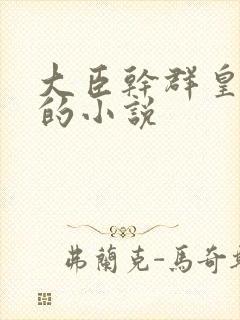 大臣幹群皇
的小說
弗蘭克-馬奇